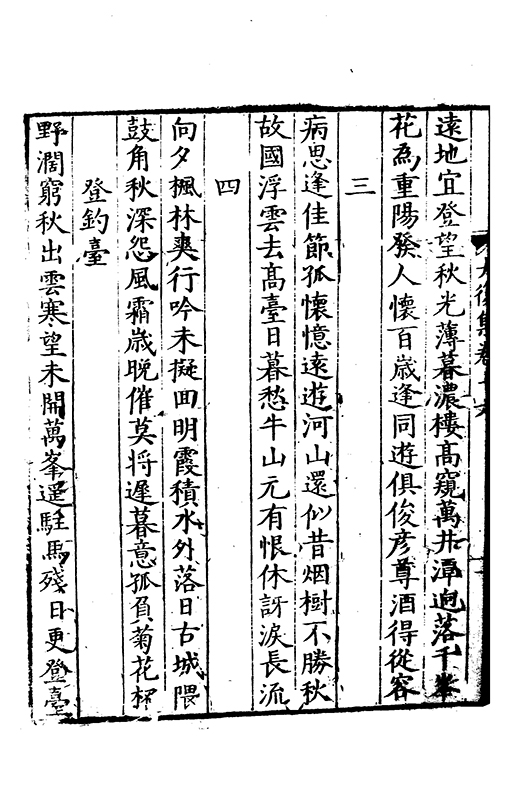 遠地宜登望秋光薄暮濃樓髙窺萬井潭逈落千峯
花為重陽發人懷百歳逢同遊俱俊彦尊酒得從容
三
病思逢佳節孤懷憶遠遊河山還似昔烟樹不勝秋
故國浮雲去髙臺日暮愁牛山元有恨休訝淚長流
四
向夕楓林爽行吟未擬囬明霞積水外落日古城隈
鼓角秋深怨風霜歳晚催莫将遲暮意孤負菊花杯
登釣臺
野濶窮秋出雲寒望未開萬峯遥駐馬殘日更登臺